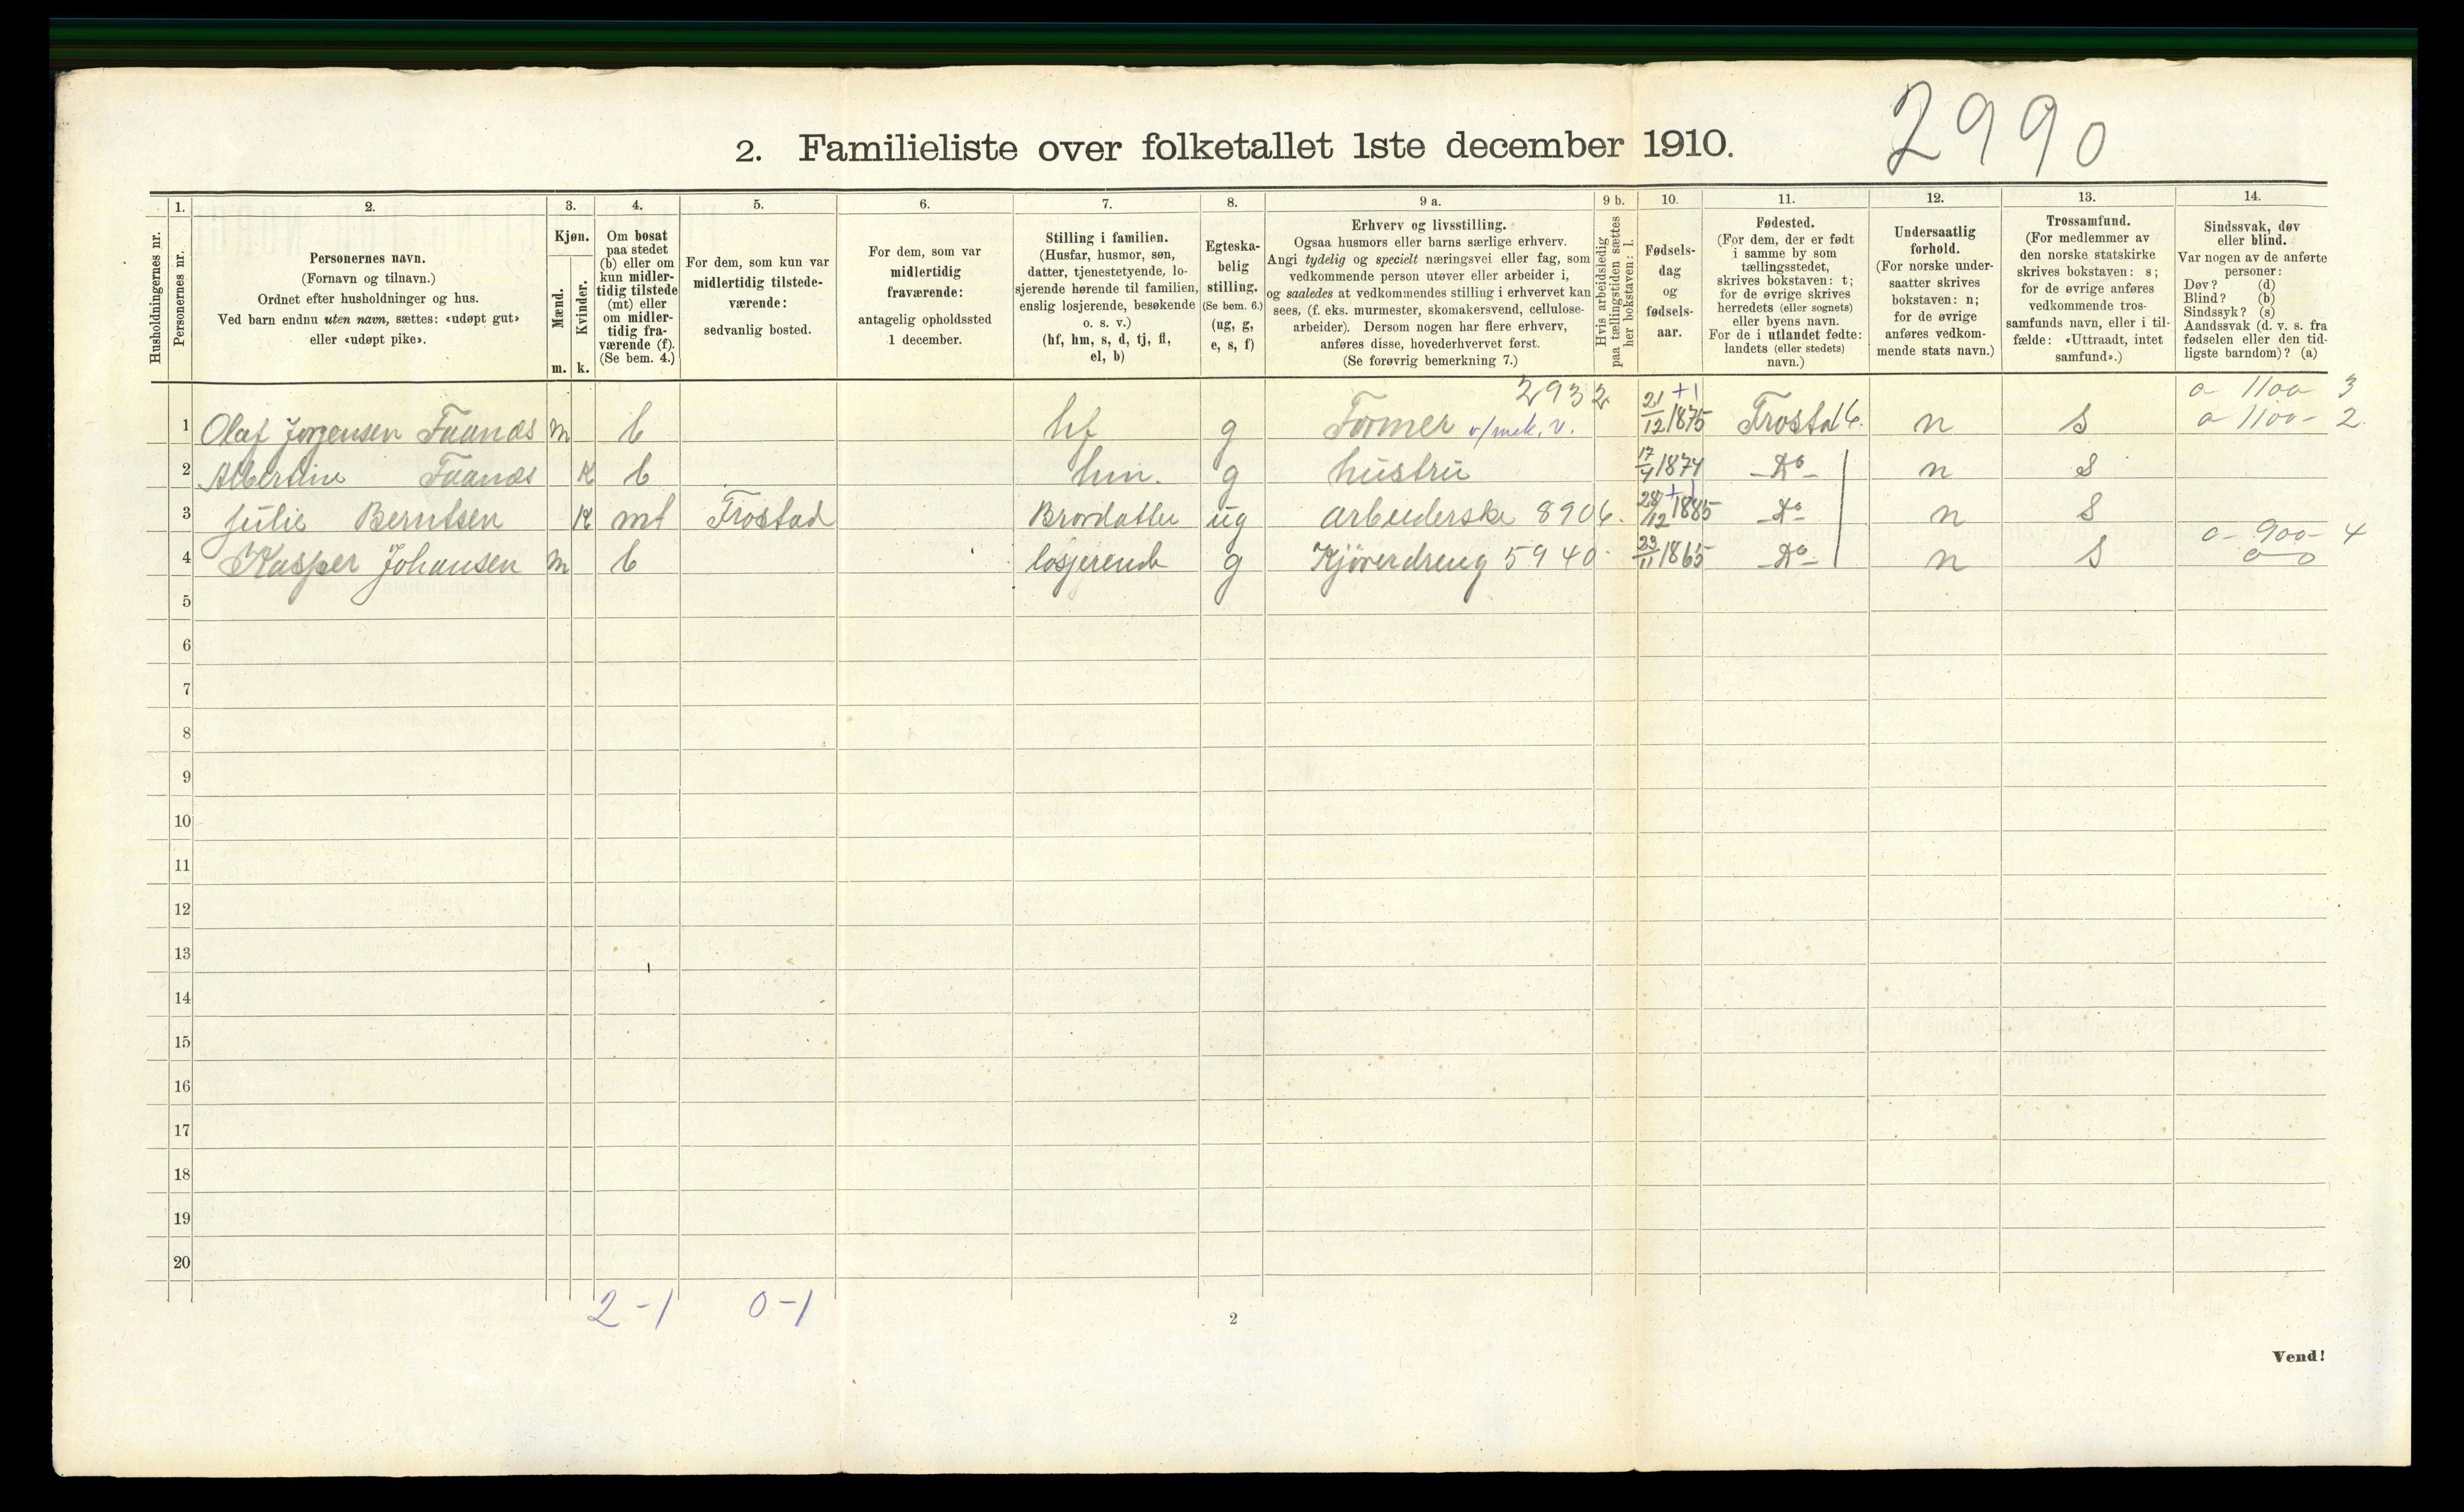 2990
2. Familieliste over folketallet 1ste december 1910.
Husholdningernes nr.
1. Personernes nr.
2. Personernes navn. (Fornavn og tilnavn.) Ordnet efter husholdninger og hus. Ved barn endnu uten navn, sættes: «udøpt gut» eller «udøpt pike».
3. Kjøn. Mænd. m. Kvinder. k.
4. Om bosat paa stedet (b) eller om kun midlertidig tilstede (mt) eller om midlertidig fraværende (f). (Se bem. 4.)
5. For dem, som kun var midlertidig tilstedeværende: sedvanlig bosted.
6. For dem, som var midlertidig fraværende: antagelig opholdssted 1 december.
7. Stilling i familien. (Husfar, husmor, søn, datter, tjenestetyende, losjerende hørende til familien, enslig losjerende, besøkende o. s. v.) (hf, hm, s, d, tj, fl, el, b)
8. Egteskabelig stilling. (Se bem. 6.) (ug, g, e, s, f)
9 a. Erhverv og livsstilling. Ogsaa husmors eller barns særlige erhverv. Angi tydelig og specielt næringsvei eller fag, som vedkommende person utøver eller arbeider i, og saaledes at vedkommendes stilling i erhvervet kan sees, (f. eks. murmester, skomakersvend, cellulosearbeider). Dersom nogen har flere erhverv, anføres disse, hovederhvervet først. (Se forøvrig bemerkning 7.)
9 b. Hvis arbeidsledig paa tællingstiden sættes her bokstaven: l.
10. Fødselsdag og fødselsaar.
11. Fødested. (For dem, der er født i samme by som tællingsstedet, skrives bokstaven: t; for de øvrige skrives herredets (eller sognets) eller byens navn. For de i utlandet fødte: landets (eller stedets) navn.)
12. Undersaatlig forhold. (For norske undersaatter skrives bokstaven: n; for de øvrige anføres vedkommende stats navn.)
13. Trossamfund. (For medlemmer av den norske statskirke skrives bokstaven: s; for de øvrige anføres vedkommende trossamfunds navn, eller i tilfælde: «Uttraadt, intet samfund».)
14. Sindssvak, døv eller blind. Var nogen av de anførte personer: Døv? (d) Blind? (b) Sindssyk? (s) Aandssvak (d. v. s. fra fødselen eller den tidligste barndom)? (a)
2932 +1 a- 1100- 3
1 Olaf Jørgensen Faanæs m b hf g Former v/mek. v. 21/12 1875 Frosta 16. n s a- 1100- 2.
2 Albertine Faanæs k b hm. g hustru 17/4 1874 -Do- n s
3 Julie Berntsen k mt Frostad Brordatter ug arbeiderske 8906. +1 28/12 1885 -Do- n s
a- 900- 4
4 Kasper Johansen m b losjerende g Kjøredreng 5940. 23/11 1865 -Do- n s a-0
5
6
7
8
9
10
11
12
13
14
15
16
17
18
19
20
2-1 0-1
2
Vend!